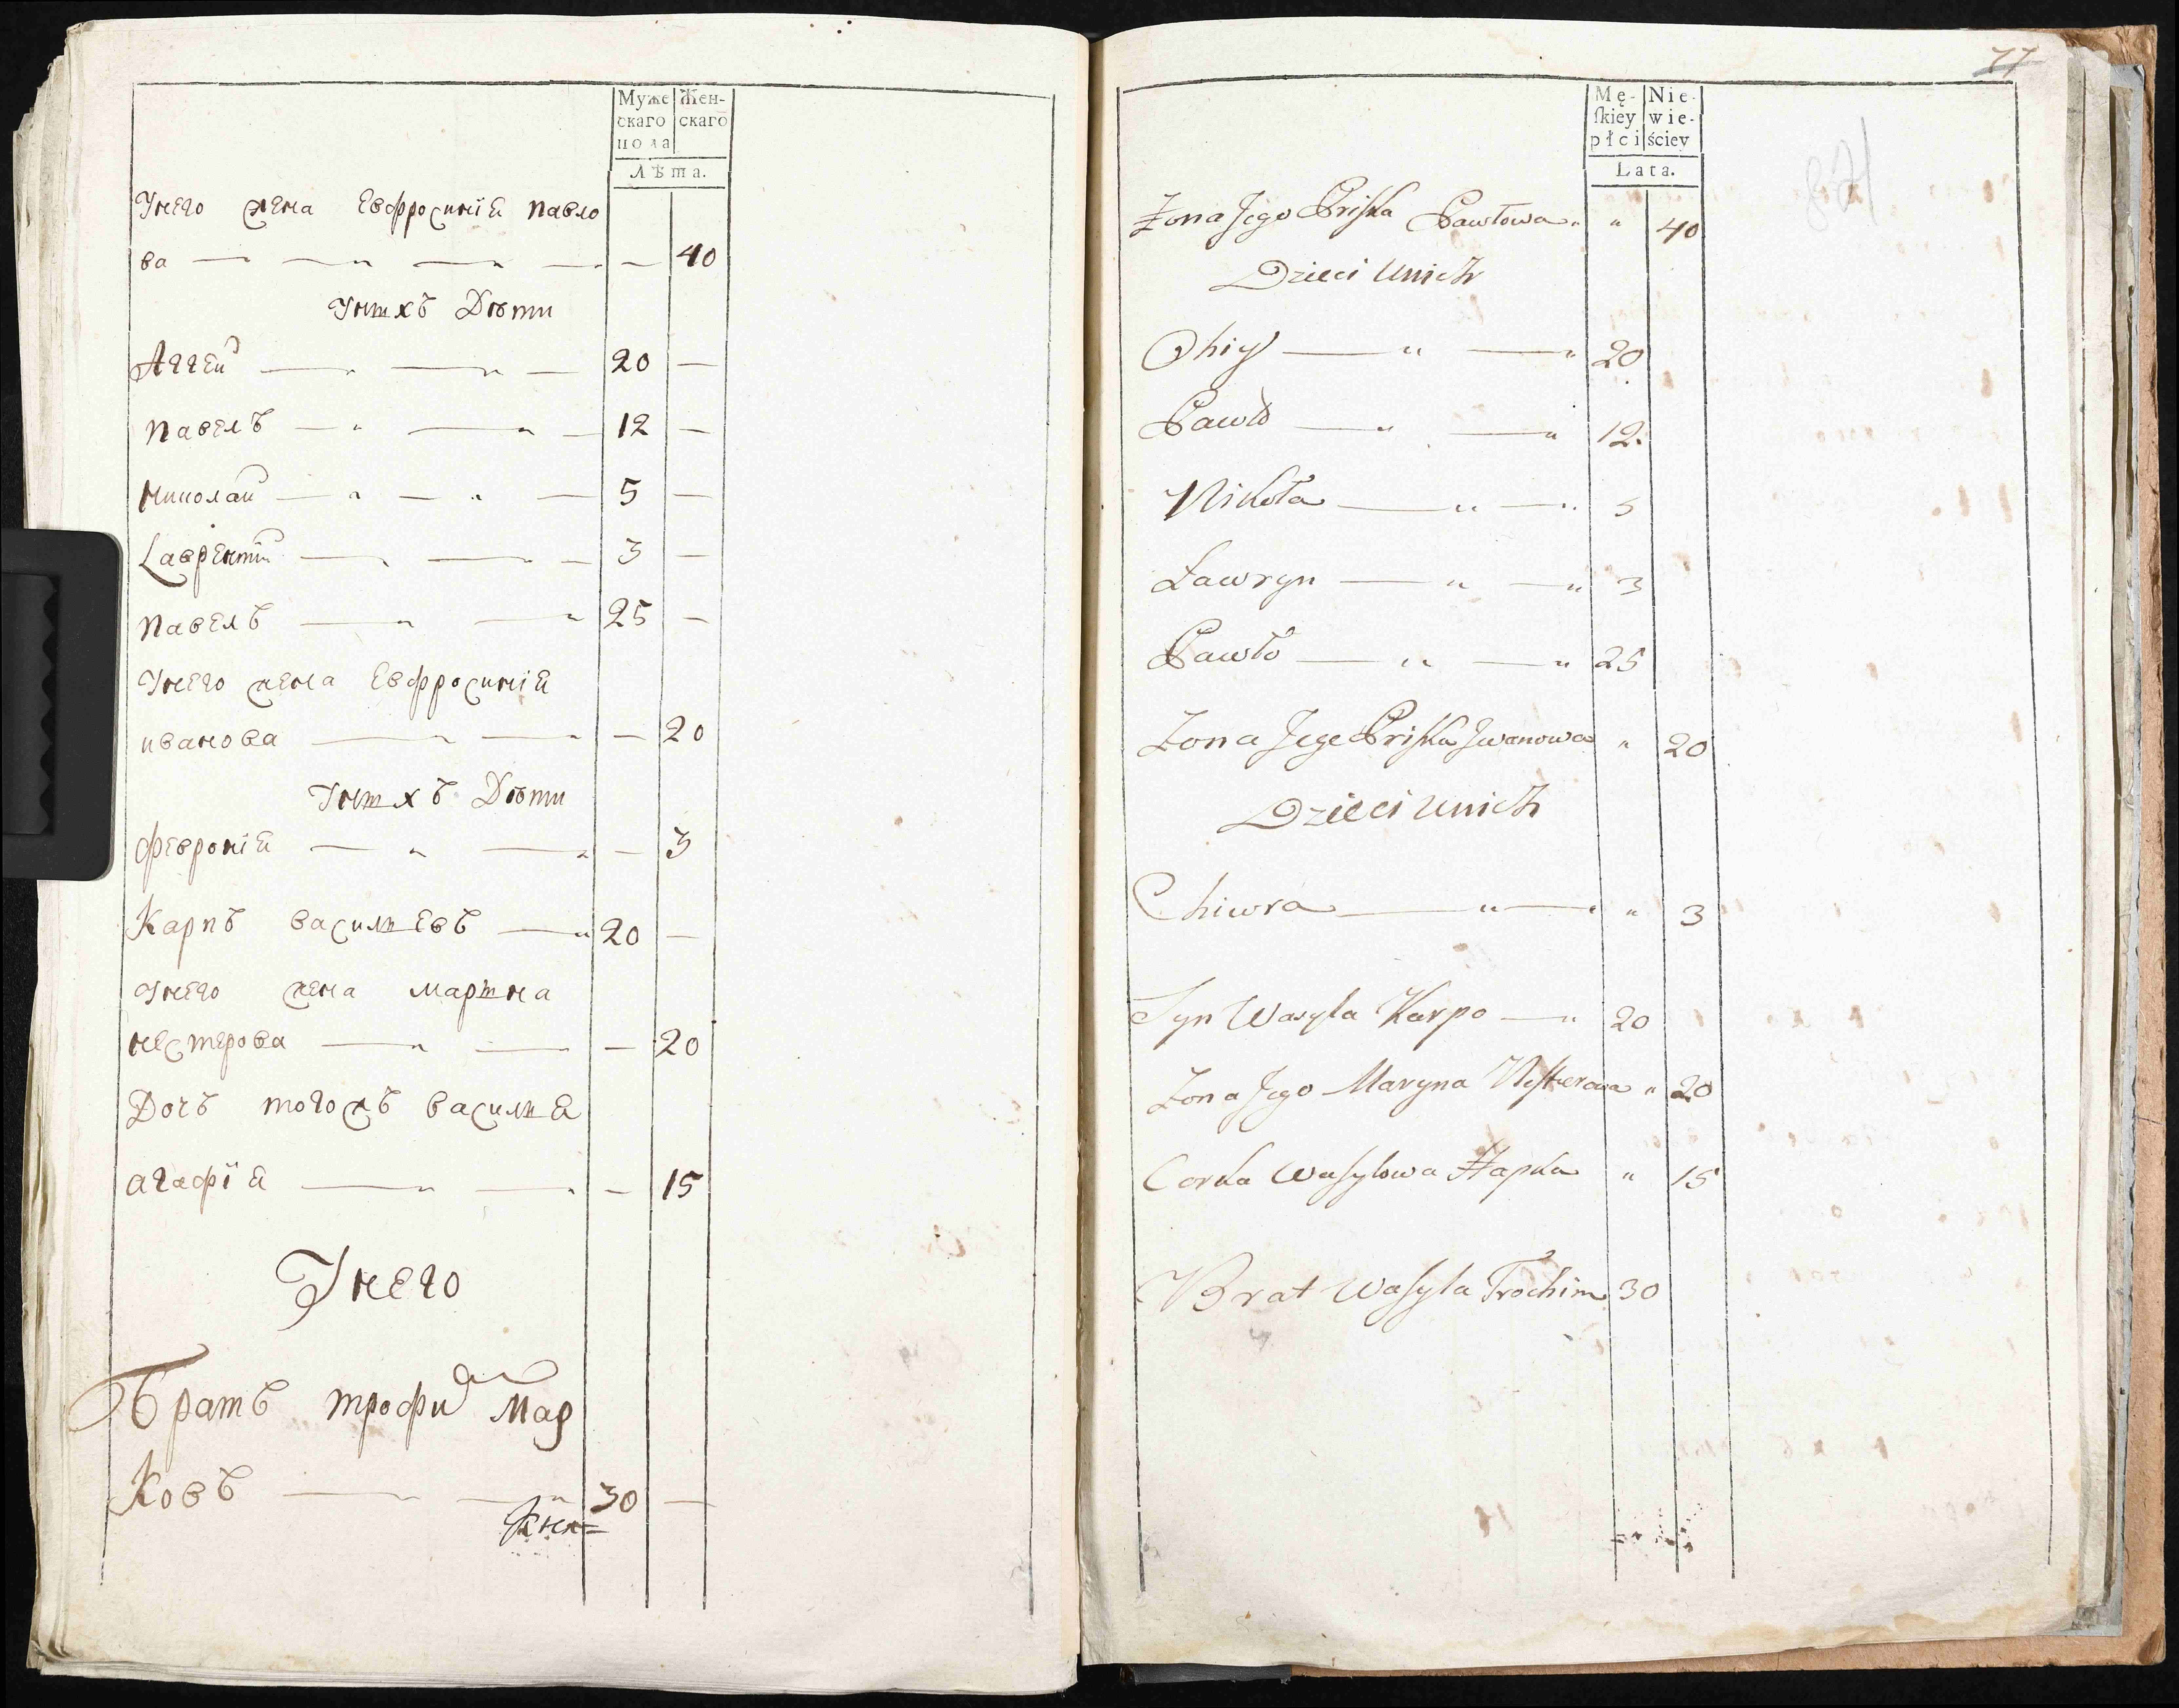 Муже Жен-
скаго скаго
пола
Лѣта.
Унего жена Евфросинія Павло
ва — — — — — 40
Унихъ Дѣти
Аггей — — — 20 —
Павелъ — — — 12 —
Николай — — — 5 —
Лаврентий — — — 3 —
Павелъ — — 25 —
Унего жена Евфросинія
иванова — — — 20
Унихъ Дѣти
Февронія — — — 3
Карпъ васильевъ — 20 —
Унего жена марина
нестерова — — — 20
Дочь тогожъ василия
агафія — — — 15
Унего
Братъ трофим Мар
ковъ — — 30 —
77
871
Mę- Nie-
ſkiey wie-
płci ściey
Lata.
Żona Jego Priska Pawłowa " " 40
Dzieci Unich
Ohiy — " — " 20
Pawło — " — " 12.
Nikoła — " — " 5
Ławryn — " — " 3
Pawło — " — " 25
Żona Jego Priska Jwanowa " 20
Dzieci Unich
Chiwra — " — " " 3
Syn Wasyla Karpo — " 20
Żona Jego Maryna Nesterowa " 20
Corka Wasylowa Hapka " 15
Brat Wasyla Trochim 30